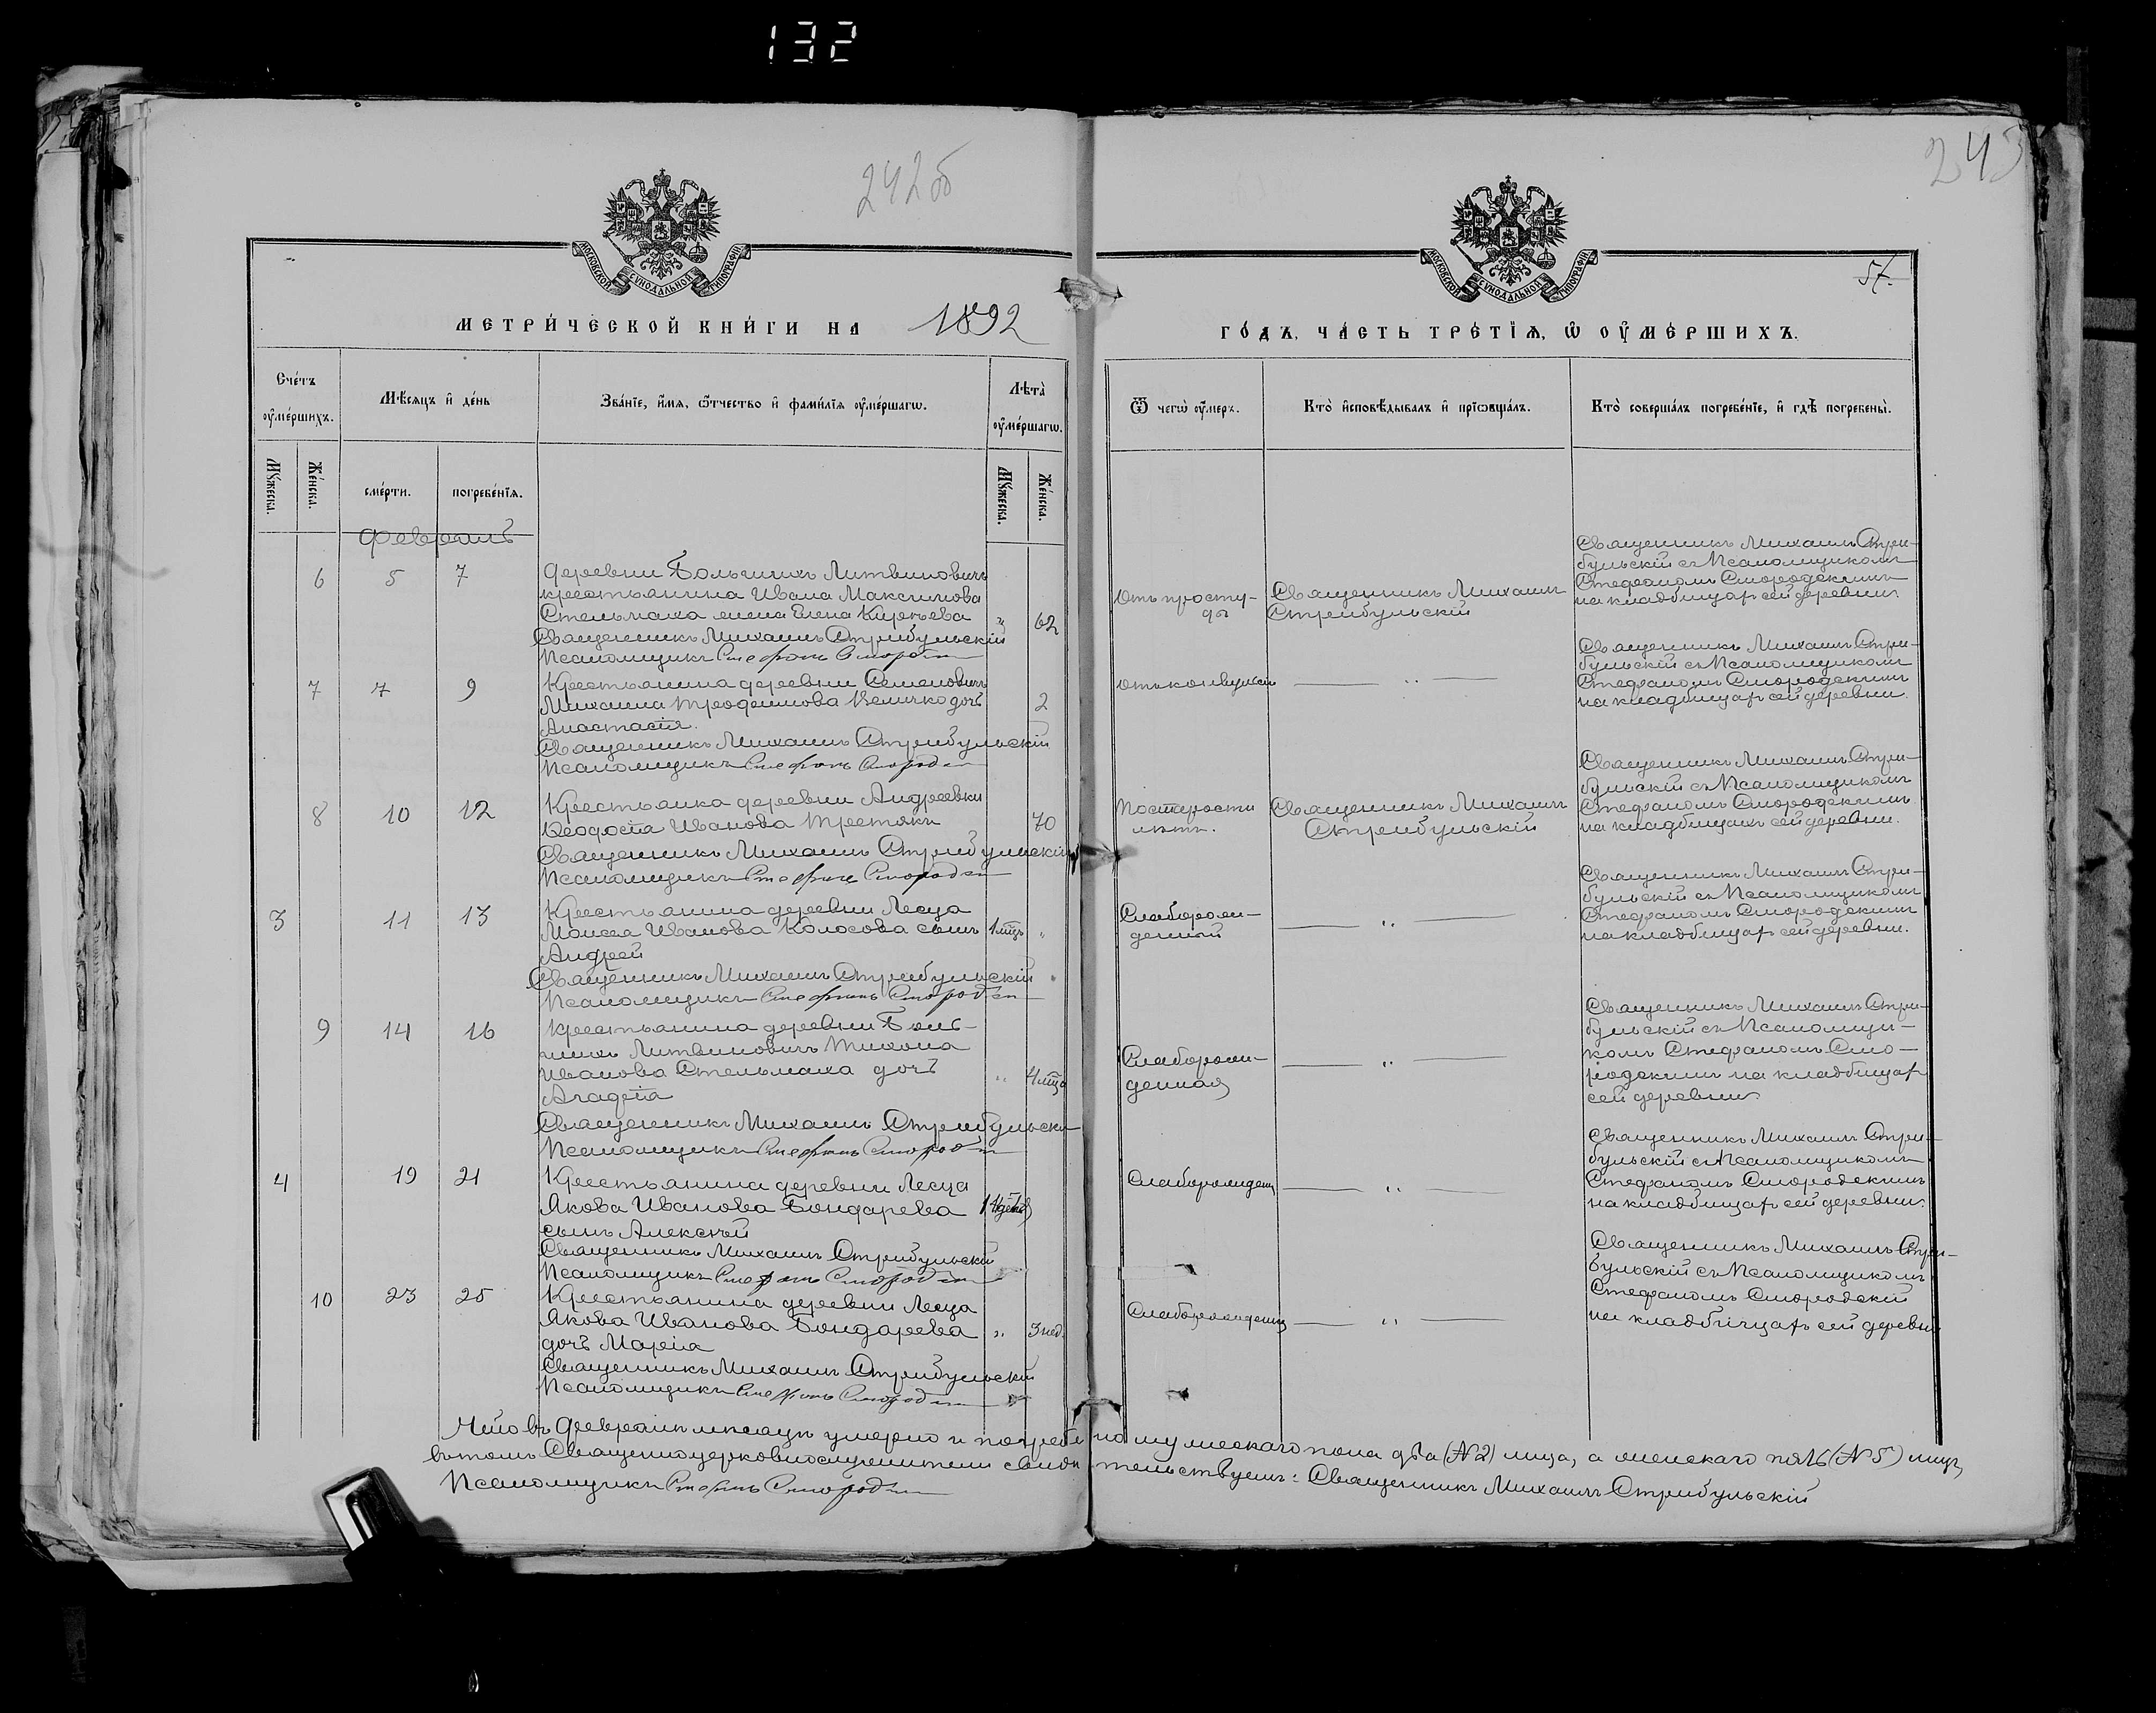 132
242об
243
57.
МОСКОВСКОЙ СѴНОДАЛЬНОЙ ТИПОГРАФІИ
МОСКОВСКОЙ СѴНОДАЛЬНОЙ ТИПОГРАФІИ
МЕТРИ́ЧЕСКОЙ КНИ́ГИ НА 1892
ГО́ДЪ, ЧА́СТЬ ТРЕ́ТІѦ, Ѡ ОУ҆МЕ́РШИХЪ.
Сче́тъ оу҆ме́ршихъ.
Мѣ́сяцъ и҆ де́нь
Зва́нїе, и҆́мѧ, ѻ҆́тчество и҆ фами́лїѧ оу҆ме́ршагѡ.
Лѣта̀ оу҆ме́ршагѡ.
Ѿ чегѡ̀ оу҆́меръ.
Кто̀ и҆сповѣ́дывалъ и҆ прїѡбща́лъ.
Кто̀ соверша́лъ погребе́нїе, и҆ гдѣ̀ погребены̀.
Мꙋ́жеска.
Же́нска.
сме́рти.
погребе́нїѧ.
Мꙋ́жеска.
Же́нска.
Февраль
6 5 7 деревни Большихъ Литвиновичъ
крестьянина Ивана Максимова
Стельмаха жена Елена Кирѣева „ 62
Священникъ Михаилъ Стрибульскій
Псаломщикъ Стефанъ
Отъ просту-
ды
Священникъ Михаилъ
Стрибульскій
Священникъ Михаилъ Стри-
бульскій съ Псаломщикомъ
Стефаномъ Смородскимъ
на кладбищѣ сей деревни
7 7 9 Крестьянина деревни Семеновичъ
Михаила Трофимова Величко дочь 2
Анастасія.
Священникъ Михаилъ Стрибульскій
Псаломщикъ Стефанъ
Отъ конвульсіи — „ —
Священникъ Михаилъ Стри-
бульскій съ Псаломщикомъ
Стефаномъ Смородскимъ
на кладбищѣ сей деревни.
8 10 12 Крестьянка деревни Андреевки
Ѳеодосія Иванова Третьякъ 70
Священникъ Михаилъ Стрибульскій
Псаломщикъ Стефанъ
По старости
лѣтъ.
Священникъ Михаилъ
Стрибульскій
Священникъ Михаилъ Стри-
бульскій съ Псаломщикомъ
Стефаномъ Смородскимъ
на кладбищѣ сей деревни.
3 11 13 Крестьянина деревни Лесца
Моисея Иванова Колосова сынъ 1 мѣц „
Андрей
Священникъ Михаилъ Стрибульскій
Псаломщикъ Стефанъ
Слаборож-
денный — „ —
Священникъ Михаилъ Стри-
бульскій съ Псаломщикомъ
Стефаномъ Смородскимъ
на кладбищѣ сей деревни.
9 14 16 Крестьянина деревни Боль-
шихъ Литвиновичъ Тихона
Иванова Стельмаха дочь „ 4 мѣца
Агафія
Священникъ Михаилъ Стрибульскій
Псаломщикъ Стефанъ
Слаборож-
денная — „ —
Священникъ Михаилъ Стри-
бульскій съ Псаломщи-
комъ Стефаномъ Смо-
родскимъ на кладбищѣ
сей деревни
4 19 21 Крестьянина деревни Лесца
Якова Иванова Бондарева
сынъ Алексѣй
Священникъ Михаилъ Стрибульскій
Псаломщикъ Стефанъ
Слаборожден — „ —
Священникъ Михаилъ Стри-
бульскій съ Псаломщикомъ
Стефаномъ Смородскимъ
на кладбищѣ сей деревни.
10 23 25 Крестьянина деревни Лесца
Якова Иванова Бондарева „ 3 нед.
дочь Марія
Священникъ Михаилъ Стрибульскій
Псаломщикъ Стефанъ
Слаборожден — „ —
Священникъ Михаилъ Стри-
бульскій съ Псаломщикомъ
Стефаномъ Смородскій
на кладбищѣ сей деревни
Что въ Февралѣ мѣсяцѣ умерло и погребено мужескаго пола два (№ 2) лица, а женскаго пять (№ 5) лицъ,
въ томъ Священноцерковнослужители свидѣтельствуемъ: Священникъ Михаилъ Стрибульскій
Псаломщикъ Стефанъ